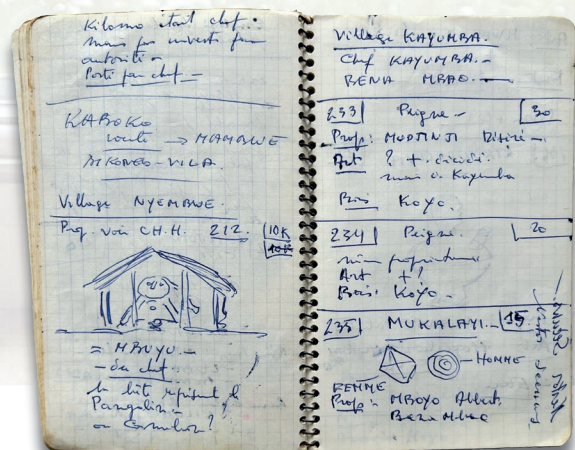 Kilomo était chef.
mais pas investi par
autorité
Porté par chef -
KABOKO
route → MAMBWE
MKONGO-VILA.
Village NYEMBWE.
Prop. voir CH.H. 212. 10K
= MBUYU. -
- du chef.
la bête représent le
Pangolin -
ou Cormoran?
Village KAYUMBA.
Chef KAYUMBA. -
BENA MBAO. -
233 Peigne - 30
Prop: MUDJINJI Désiré -
Art ? + décédé.
mais o. Kayumba
Bois Koyo.
234 Peigne. 20
même propriétaire
Art + ?
Bois: Koyo -
235 MUKALAYI. - 15
HOMME
FEMME
Prop: MBOYO Albert
Bena Mbao